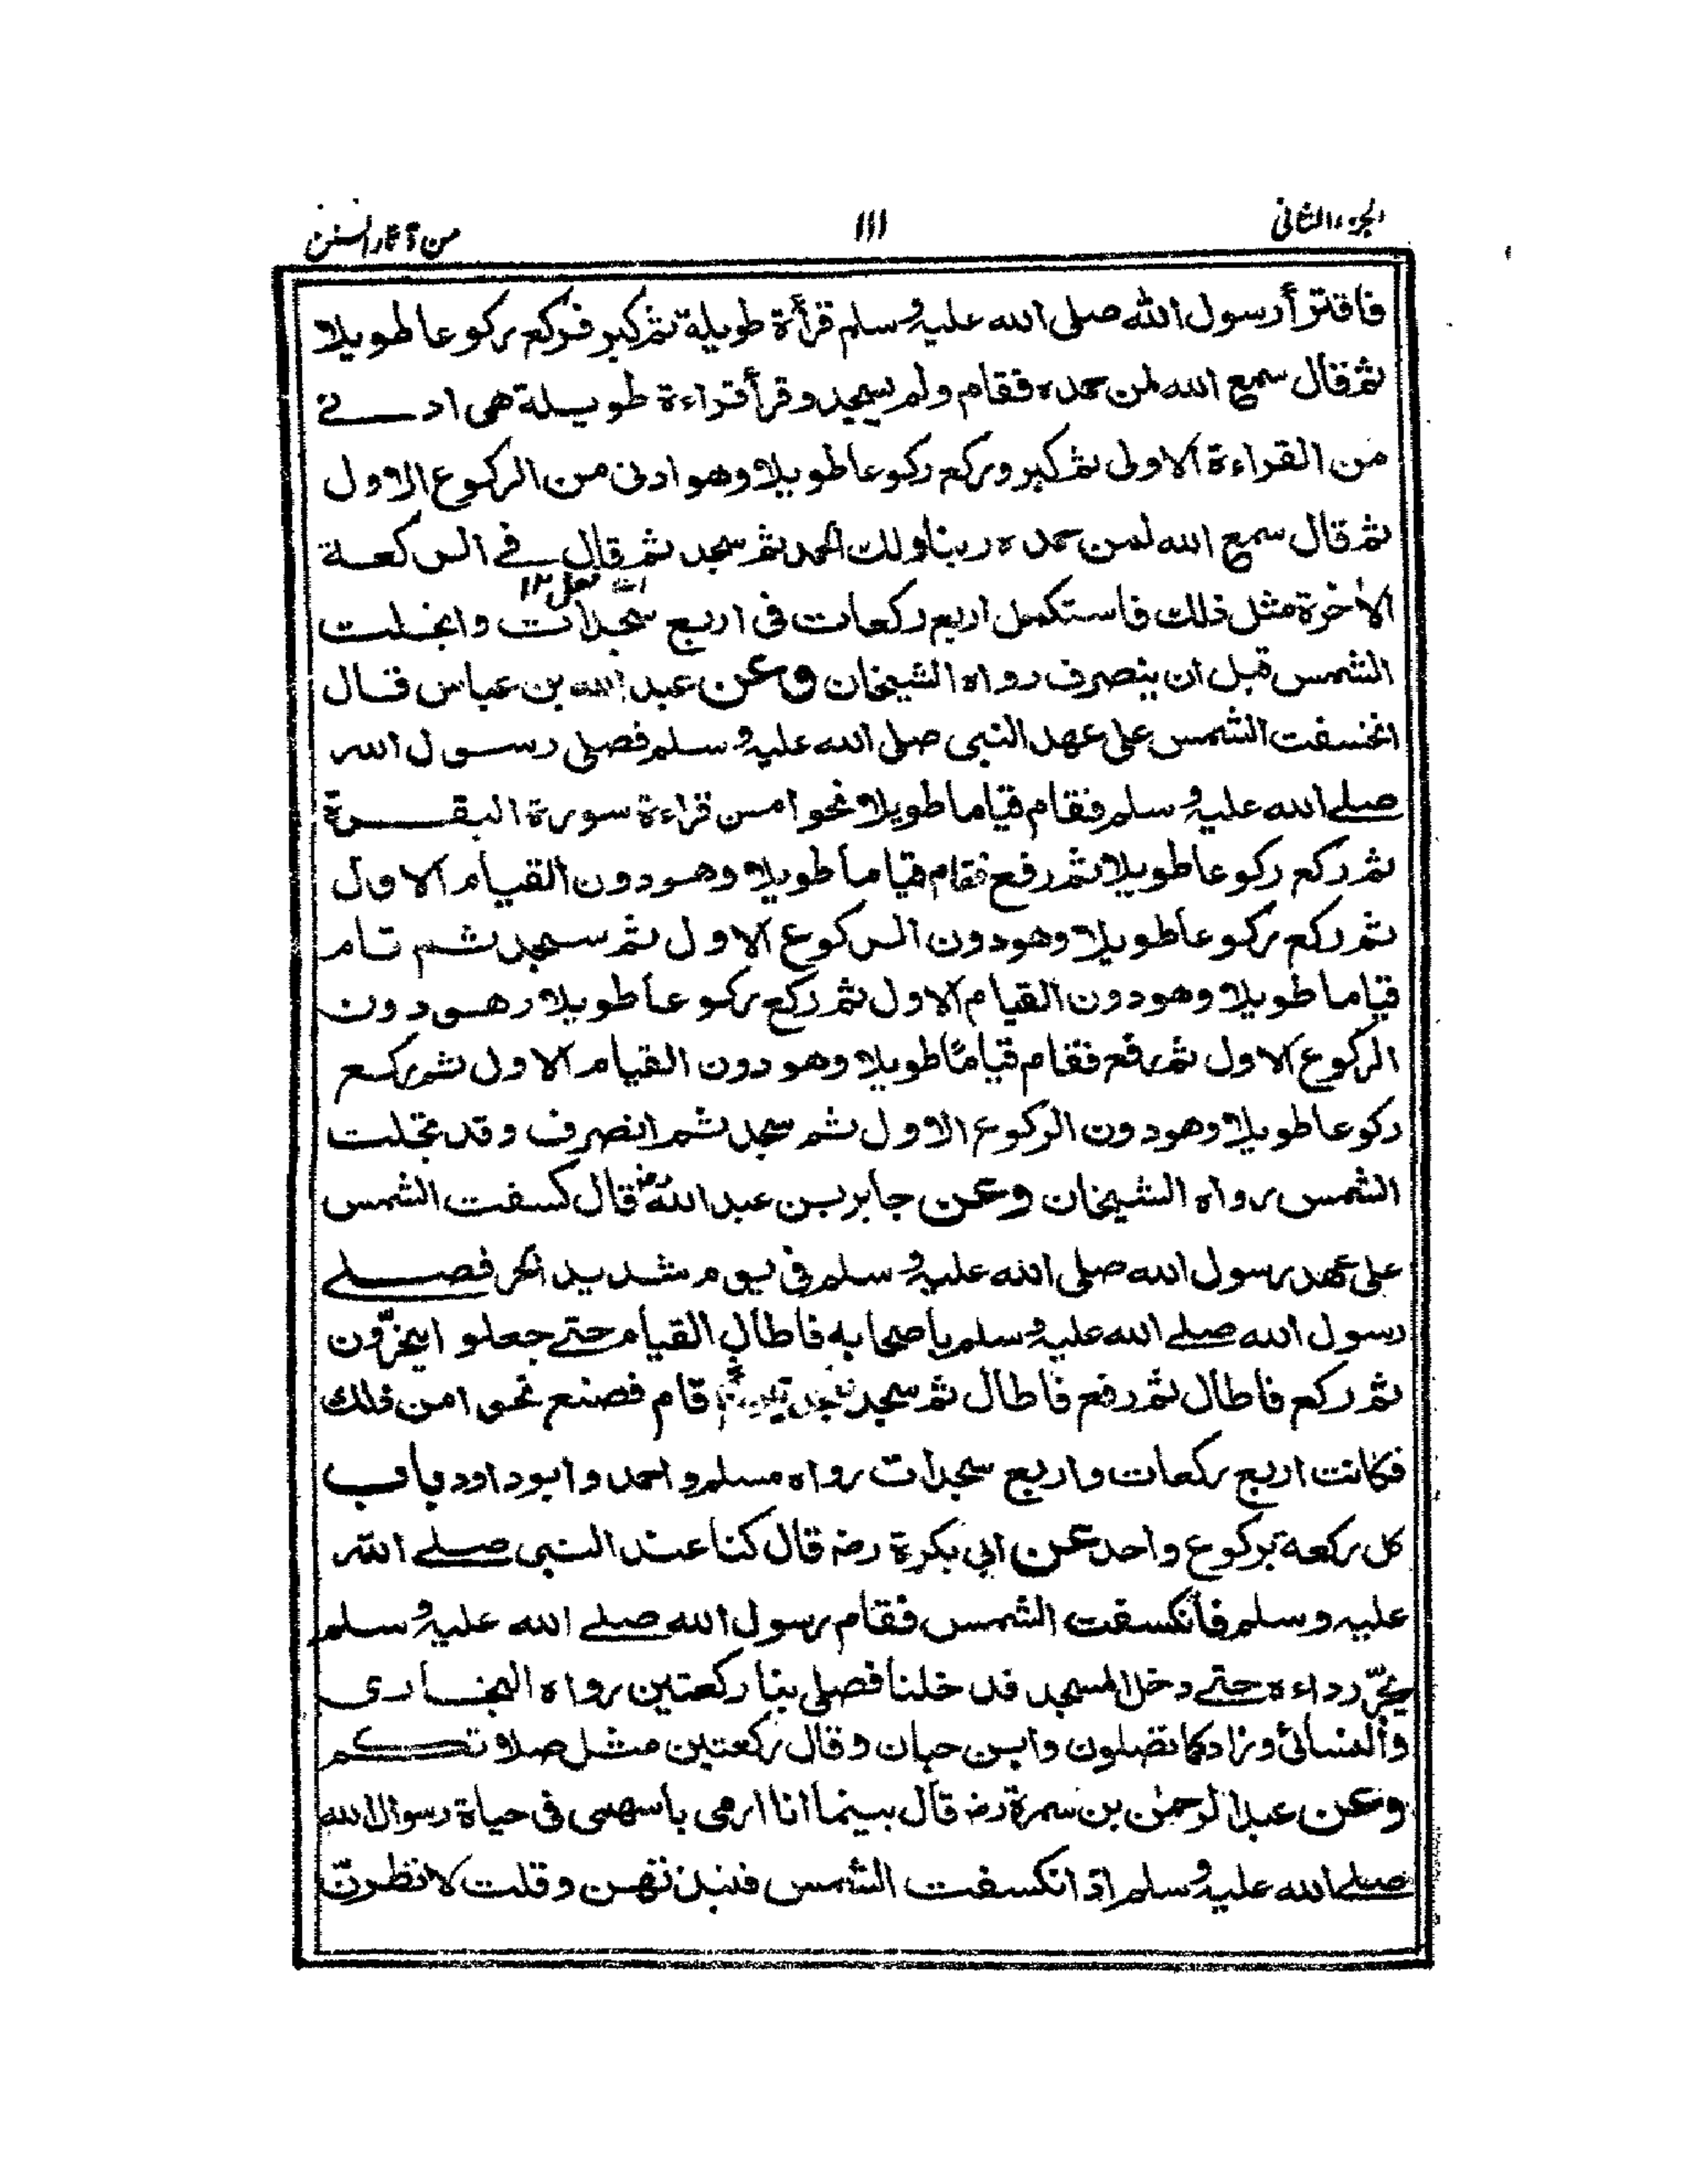 الجزء الثانی ١١١ من آثار السنن
فاقترأ رسول الله صلی الله علیہ وسلم قرأة طویلة ثم کبر فرکع رکوعا طویلا
ثم قال سمع الله لمن حمده فقام ولم یسجد وقرأ قراءة طویلة هی ادنے
من القراءة الاولی ثم کبر ورکع رکوعا طویلا وهو ادنی من الرکوع الاول
ثم قال سمع الله لمن حمده ربنا ولك الحمد ثم سجد ثم قال فے الرکعة
اے فعل ١٢
الاٰخرة مثل ذلك فاستکمل اربع رکعات فی اربع سجدات وانجلت
الشمس قبل ان ینصرف رواه الشیخان وعن عبد الله بن عباس قال
انخسفت الشمس علی عهد النبی صلی الله علیہ وسلم فصلی رسول الله
صلے الله علیہ وسلم فقام قیاما طویلا نحوا من قراءة سورة البقرة
ثم رکع رکوعا طویلا ثم رفع فقام قیاما طویلا وهو دون القیام الاول
ثم رکع رکوعا طویلا وهو دون الرکوع الاول ثم سجد ثم قام
قیاما طویلا وهو دون القیام الاول ثم رکع رکوعا طویلا وهو دون
الرکوع الاول ثم رفع فقام قیامًا طویلا وهو دون القیام الاول ثم رکع
رکوعا طویلا وهو دون الرکوع الاول ثم سجد ثم انصرف وقد تجلت
الشمس رواه الشیخان وعن جابر بن عبد الله رض قال کسفت الشمس
علی عهد رسول الله صلی الله علیہ وسلم فی یوم شدید الحر فصلے
رسول الله صلے الله علیہ وسلم باصحابه فاطال القیام حتے جعلوا یخرّون
ثم رکع فاطال ثم رفع فاطال ثم سجد سجدتین ثم قام فصنع نحوا من ذلك
فکانت اربع رکعات واربع سجدات رواه مسلم واحمد وابو داود باب
کل رکعة برکوع واحد عن ابی بکرة رضه قال کنا عند النبی صلے الله
علیہ وسلم فانکسفت الشمس فقام رسول الله صلے الله علیہ وسلم
یجرّ رداءه حتے دخل المسجد فدخلنا فصلی بنا رکعتین رواه البخاری
والنسائی وزاد کما تصلون وابن حبان وقال رکعتین مثل صلاتکم
وعن عبد الرحمٰن بن سمرة رضه قال بینما انا ارمی باسهمی فی حیاة رسول الله
صلے الله علیہ وسلم اذ انکسفت الشمس فنبذتهن وقلت لانظرنّ